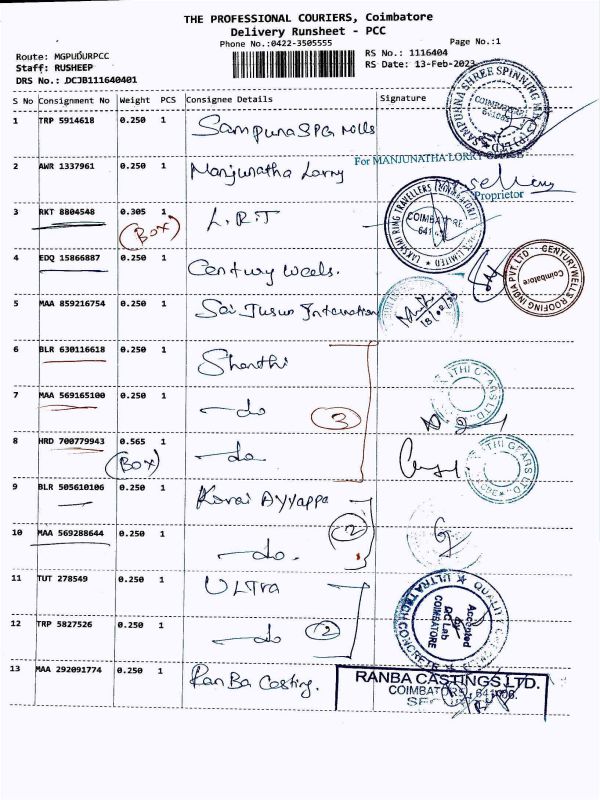 THE PROFESSIONAL COURIERS, Coimbatore
Delivery Runsheet - PCC
Phone No.:0422-3505555
Page No.:1
Route: MGPUDURPCC
RS No.: 1116404
Staff: RUSHEEP
RS Date: 13-Feb-2023
DRS No.: DCJB111640401
S No Consignment No Weight PCS Consignee Details Signature
1 TRP 5914618 0.250 1 Sampuna SPG mills
SAMPURNA SHREE SPINNING
COIMBATORE
2 AWR 1337961 0.250 1 Manjunatha Lorry
For MANJUNATHA LORRY OFFICE
Proprietor
3 RKT 8804548 0.305 1 L.R.T
(BOX)
LAKSHMI RING TRAVELLERS (COIMBATORE) LIMITED
COIMBATORE
4 EDQ 15866887 0.250 1 Century Weels.
CENTURYWELLS ROOFING INDIA PVT. LTD
Coimbatore
5 MAA 859216754 0.250 1
6 BLR 630116618 0.250 1 Shanthi
7 MAA 569165100 0.250 1 -do
3
GEARS LTD
8 HRD 700779943 0.565 1 -do
(BOX)
THI GEARS LTD.
9 BLR 505610106 0.250 1 Kovai Ayyappa
2
10 MAA 569288644 0.250 1 -do.
11 TUT 278549 0.250 1 ULtra
ULTRA TECH CONCRETE
QUALITY
Accepted
by
QC Lab
COIMBATORE
12 TRP 5827526 0.250 1 -do
2
13 MAA 292091774 0.250 1 RanBa Casting.
RANBA CASTINGS LTD.
COIMBATORE, 641006.